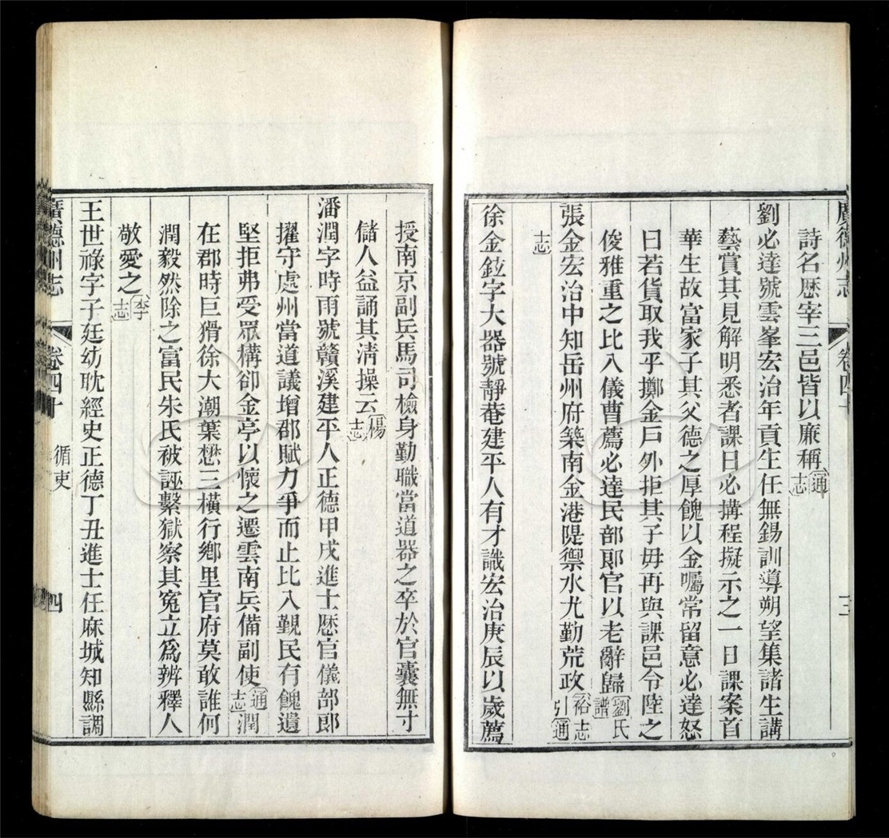 廣德州志 卷四十 三
詩名歷宰三邑皆以廉稱通志
劉必達號雲峯宏治年貢生任無錫訓導朔望集諸生講
藝賞其見解明悉者課日必搆程擬示之一日課案首
華生故富家子其父德之厚餽以金囑常留意必達怒
曰若貨取我乎擲金戶外拒其子毋再與課邑令陸之
俊雅重之比入儀曹薦必達民部郎官以老辭歸劉氏譜
張金宏治中知岳州府築南金港隄禦水尤勤荒政裕志引通
志
徐金鉝字大器號靜菴建平人有才識宏治庚辰以歲薦
授南京副兵馬司檢身勤職當道器之卒於官囊無寸
儲人益誦其清操云楊志
潘潤字時雨號贛溪建平人正德甲戌進士歷官儀部郎
擢守處州當道議增郡賦力爭而止比入覲民有餽遺
堅拒弗受眾構卻金亭以懷之遷雲南兵備副使通志潤
在郡時巨猾徐大潮葉懋三橫行鄉里官府莫敢誰何
潤毅然除之富民朱氏被誣繫獄察其冤立為辨釋人
敬愛之李志
王世祿字子廷幼耽經史正德丁丑進士任麻城知縣調
廣德州志 卷四十 循吏 四